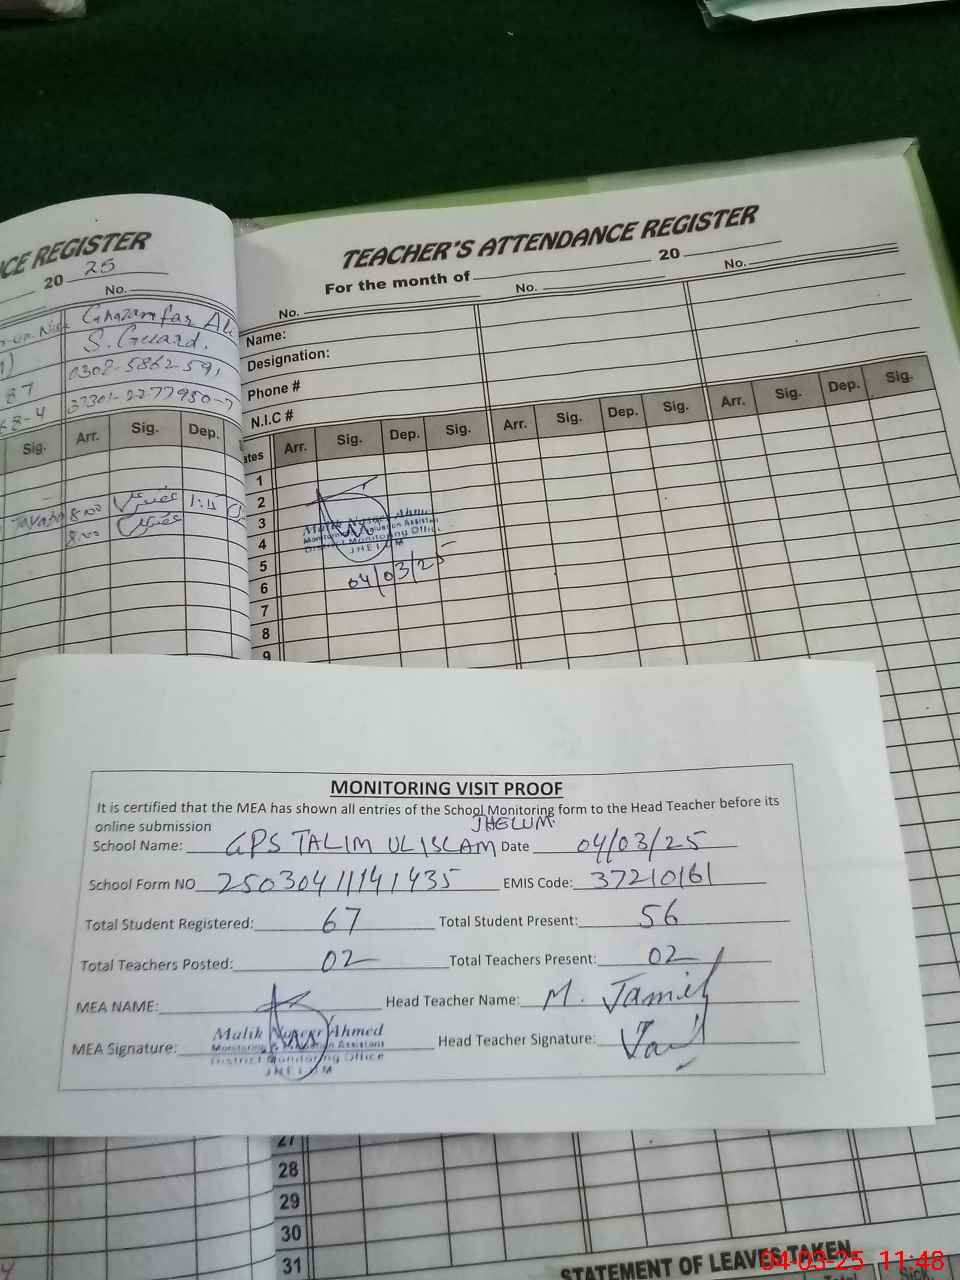 CE REGISTER
20 25
No.
Ghazamfar Al
S. Guard.
0308-5862-591
87
68-4 37301-2277950-7
Sig. Arr. Sig. Dep.
8:00 1:15
8:00
TEACHER'S ATTENDANCE REGISTER
For the month of 20
No. No. No.
Name:
Designation:
Phone #
N.I.C #
ates Arr. Sig. Dep. Sig. Arr. Sig. Dep. Sig. Arr. Sig. Dep. Sig.
1
2
3
4
5
6
7
8
9
Monitoring Assistan
District Monitoring Office
JHELUM
04/03/25
MONITORING VISIT PROOF
It is certified that the MEA has shown all entries of the School Monitoring form to the Head Teacher before its
online submission
JHELUM.
School Name: GPS TALIM UL ISLAM Date 04/03/25
School Form NO 25030411141435 EMIS Code: 37210161
Total Student Registered: 67 Total Student Present: 56
Total Teachers Posted: 02 Total Teachers Present: 02
MEA NAME: Head Teacher Name: M. Jamil
Malik Ahmed
MEA Signature: Head Teacher Signature:
Assistant
District Monitoring Office
JHELUM
27
28
29
30
31
STATEMENT OF LEAVES TAKEN
Sick
04-03-25 11:48